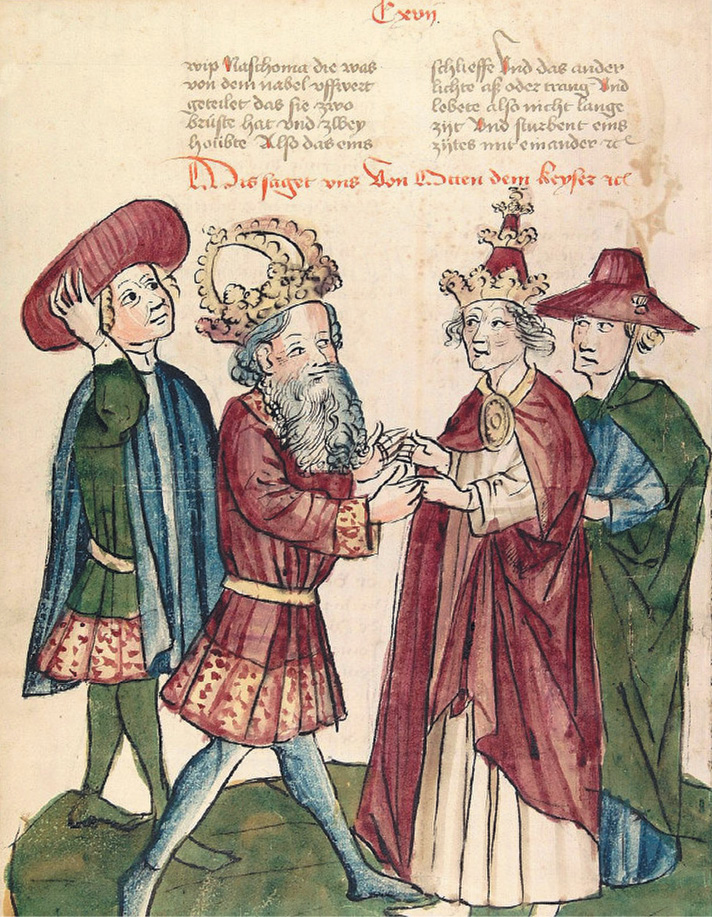 Cxvij
wip Naschoma die was
von dem nabel vffwert
geteilet das sie zwo
brüste hat vnd zwey
houbte Also das eins
schlieffe Vnd das ander
lichte aß oder trang Vnd
lebete also nicht lange
zijt Vnd sturbent eins
zijtes mit einander
Dis saget vns Von Otten dem keyser